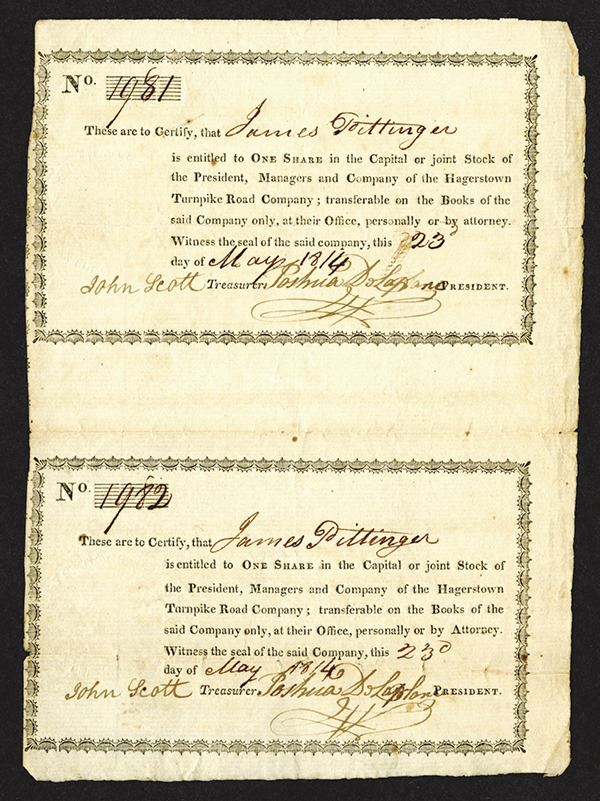 No. 1981
These are to Certify, that James Pittinger
is entitled to ONE SHARE in the Capital or joint Stock of
the President, Managers and Company of the Hagerstown
Turnpike Road Company; transferable on the Books of the
said Company only, at their Office, personally or by attorney.
Witness the seal of the said company, this 23d
day of May 1814
John Scott Treasurer. Joshua Delaplane PRESIDENT.
No. 1982
These are to Certify, that James Pittinger
is entitled to ONE SHARE in the Capital or joint Stock of
the President, Managers and Company of the Hagerstown
Turnpike Road Company; transferable on the Books of the
said Company only, at their Office, personally or by Attorney.
Witness the seal of the said Company, this 23d
day of May 1814
John Scott Treasurer Joshua Delaplane PRESIDENT.